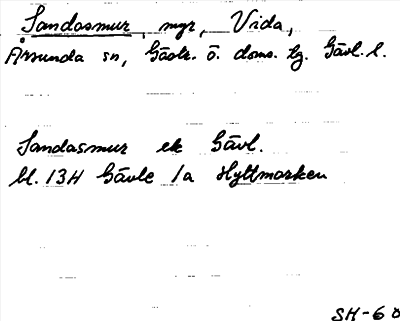 Sandasmur, myr, Vida,
Årsunda sn, Gästr. ö. doms. tg. Gävl. l.
Sandasmur ek Gävl.
bl. 13H Gävle 1a Hyttmarken
SH-60